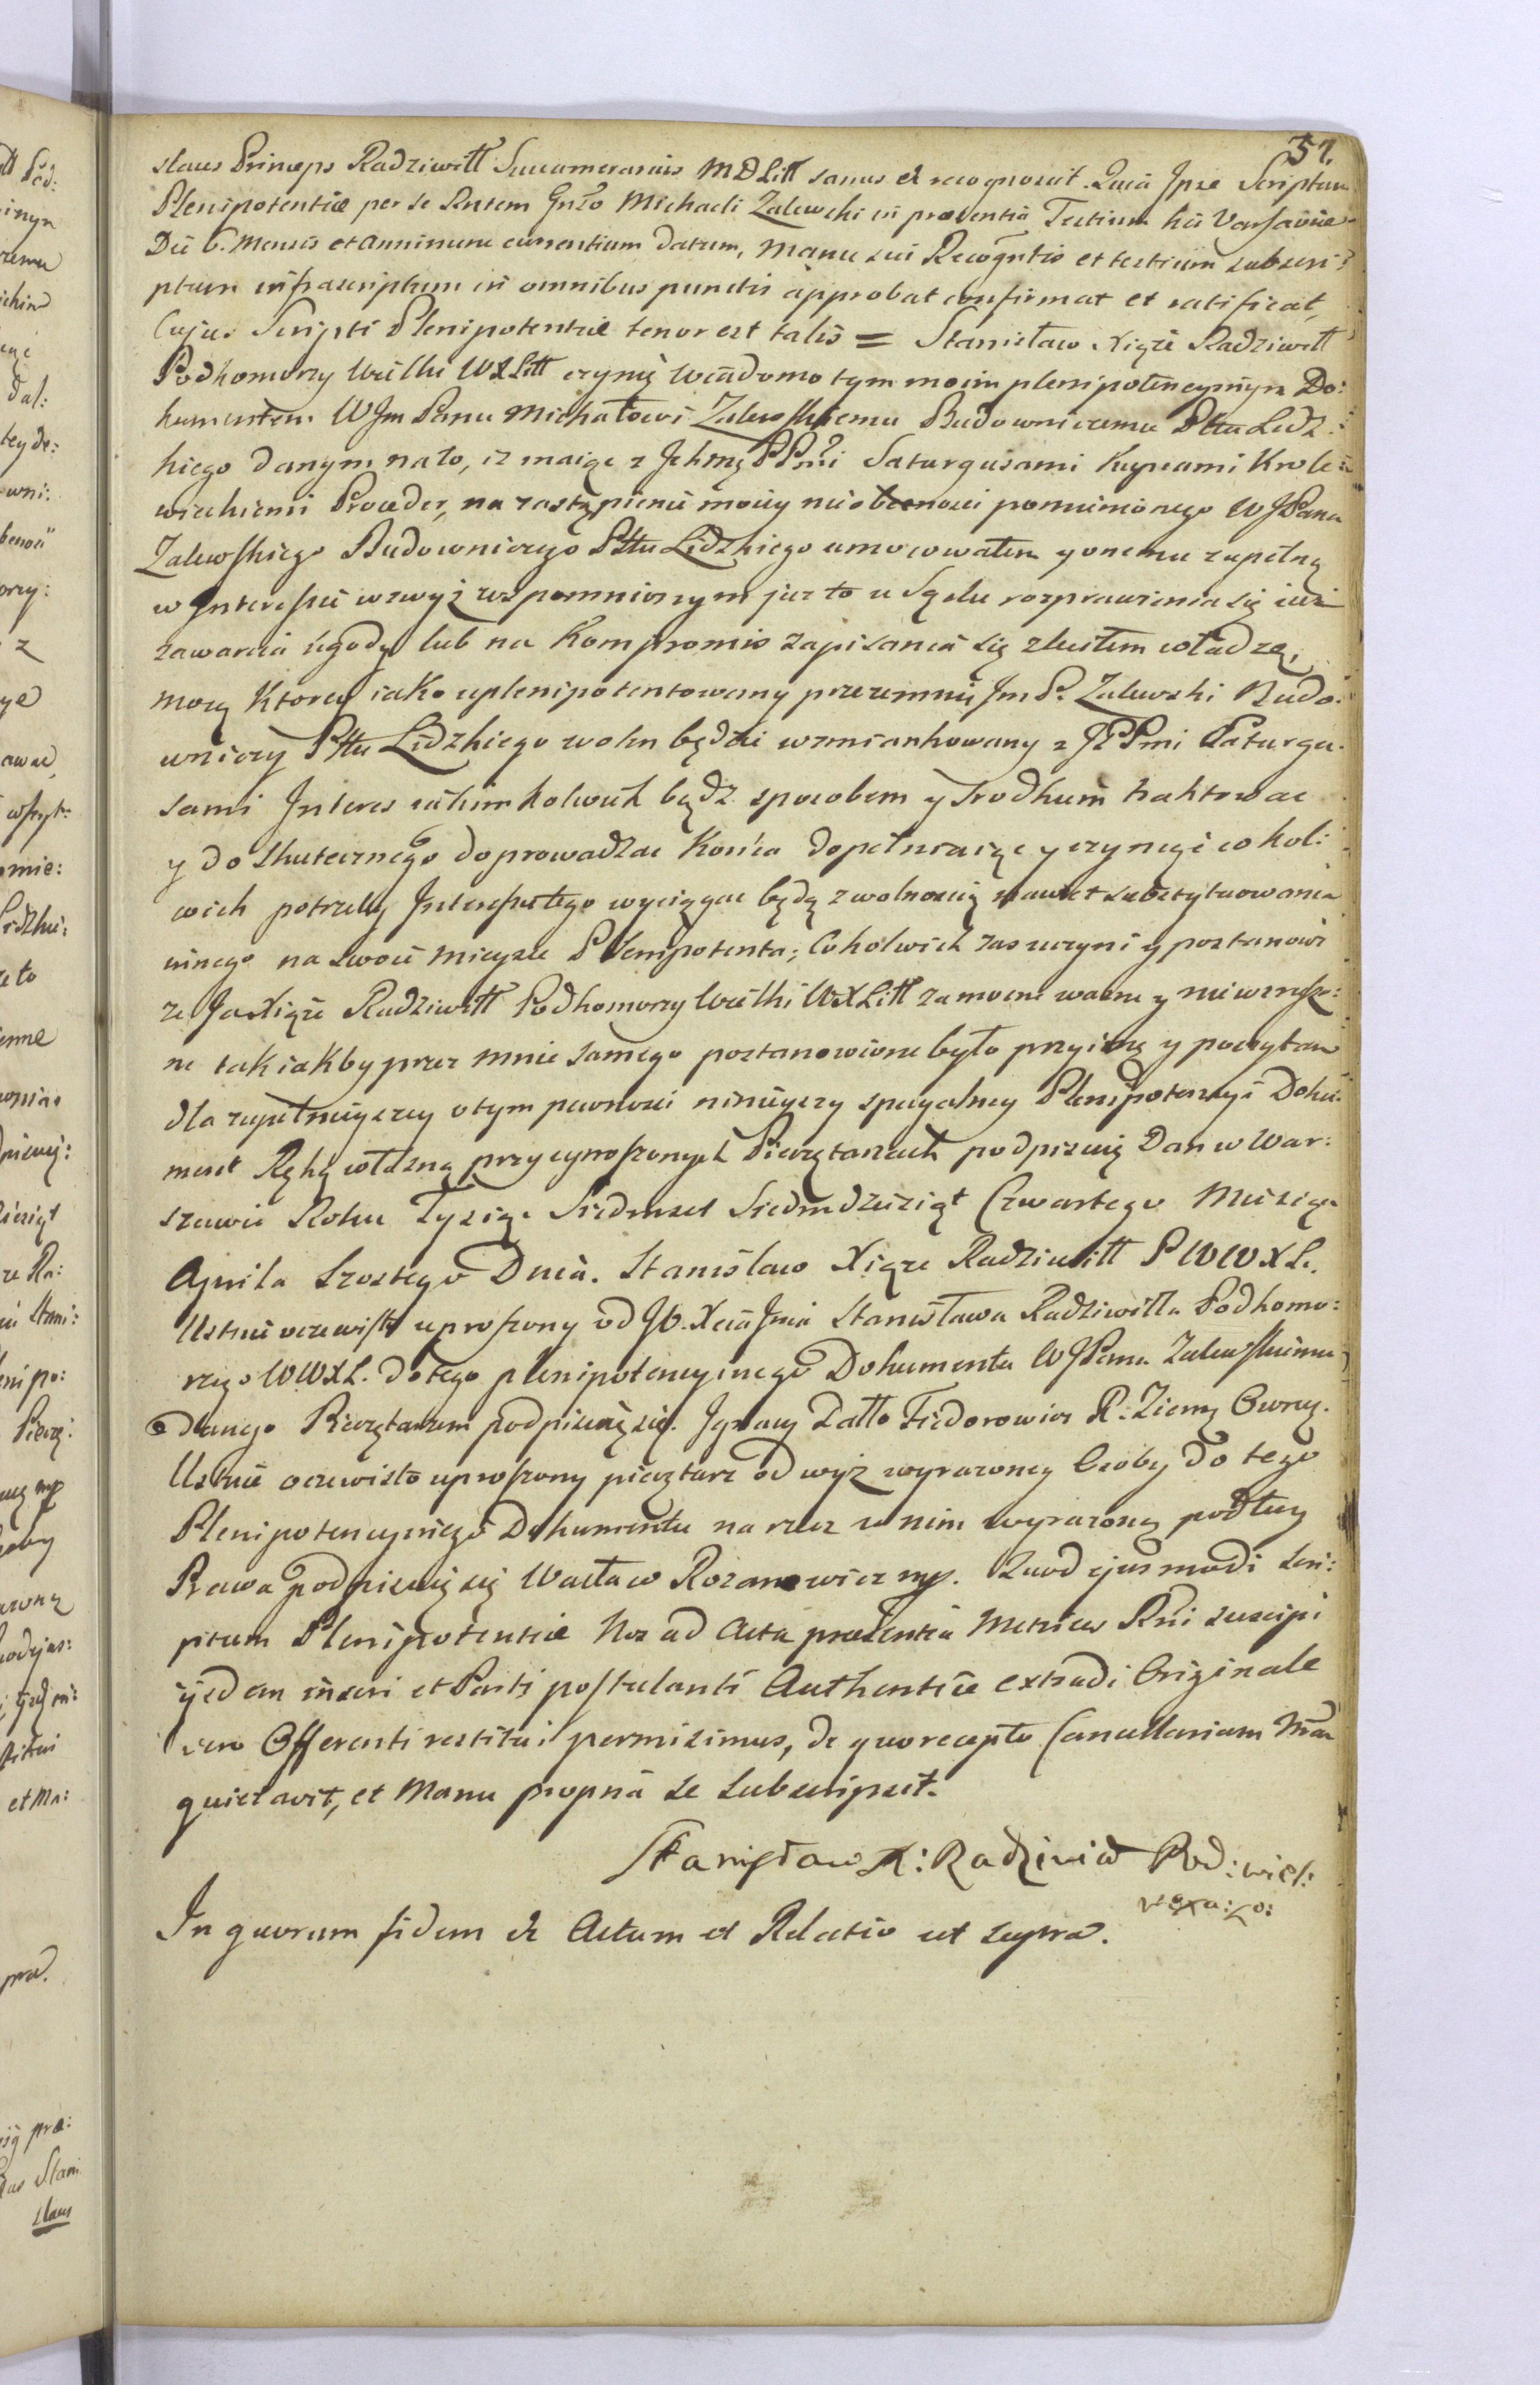 51.
slaus Princeps Radziwiłł Succamerarius M D Litt sanus et recognovit. Quia Ipse Scriptum
Plenipotentiæ per se Rntem Gnso Michaeli Zalewski in præsentia Testium hic Varsaviæ
Die 6. Mensis et Anni nunc currentium datum, Manu sui Recogntis et testium subscri:
ptum infrascriptum in omnibus punctis approbat confirmat et ratificat,
Cujus Scripti Plenipotentiæ tenor est talis = Stanisław Xiąże Radziwiłł
Podkomorzy Wielki WXLitt czynię wiadomo tym moim plenipotencyinym Do:
kumentem WJm Panu Michałowi Zalewskiemu Budowniczemu Pttu Lidz:
kiego danym na to, iż maiąc z Jchmę PPmi Saturgusami Kupcami Krole:
wieckiemi Proceder, na zastąpienie moiey nieobecnosci pomienionego WJPana
Zalewskiego Budowniczego Pttu Lidzkiego umocowałem y onemu zupełną
w Interessie wzwyż wspomnionym juz to u Sądu rozprawienia się iuż
zawarcia ugody lub na Kompromis zapisania się zleciłem władzę,
mocą ktorey iako uplenipotentowany przezemnie Jm P. Zalewski Budo:
wniczy Pttu Lidzkiego wolen będzie wzmiankowany z JPPmi Saturgu:
sami Interes iakimkolwiek bądz sposobem y srodkiem traktowac
y do skutecznego doprowadzac Końca dopełniaiąc y czyniąc cokol:
wiek potrzeby Interessu tego wyciągac będą z wolnoscią nawet substytuowania
innego na swoie mieysce Plenipotenta; Cokolwiek zas uczyni y postanowi
to Ja Xiąże Radziwiłł Podkomorzy Wielki WXLitt za mocne wazne y niewzruszo:
ne tak iakby przez mnie samego postanowione było przyimę y poczytam
dla zupełnieyszey o tym pewnosci ninieyszy specyalney Plenipotencyi Doku:
ment Ręką własną przy uproszonych Pieczętarzach podpisuię Dan w War:
szawie Roku Tysiąc Siedmset Siedmdziesiąt Czwartego Miesiąca
Aprila Szostego Dnia. Stanisław Xiąże Radziwiłł P W W X L.
Ustnie oczewisto uproszony od JO. Xcia Jmci Stanisława Radziwiłła Podkomo:
rzego WWXL. do tego plenipotencyinego Dokumentu WJPanu Zalewskiemu
danego Pieczętarzem podpisuię się. Ignacy Datto Fiedorowicz R. Ziemy Owruc.
Ustnie oczewisto uproszony pieczętarz od wyż wyrazoney Osoby do tego
Plenipotencyinego Dokumentu na rzecz w nim wyrazoną podług
Prawa podpisuię się Wacław Rozanowicz mp. Quod ejusmodi scri:
ptum Plenipotentiæ Nos ad Acta præsentia Metrices Rni suscipi
ijsdem inseri et Parti postulanti Authentice extradi Originale
vero Offerenti restitui permisimus, de quo recepto Cancellariam Mrem
quietavit, et Manu propria se subscripsit.
Stanisław X: Radziwił Pod: wiel:
W Xa: Lo:
In quorum fidem &c Actum et Relatio ut supra.